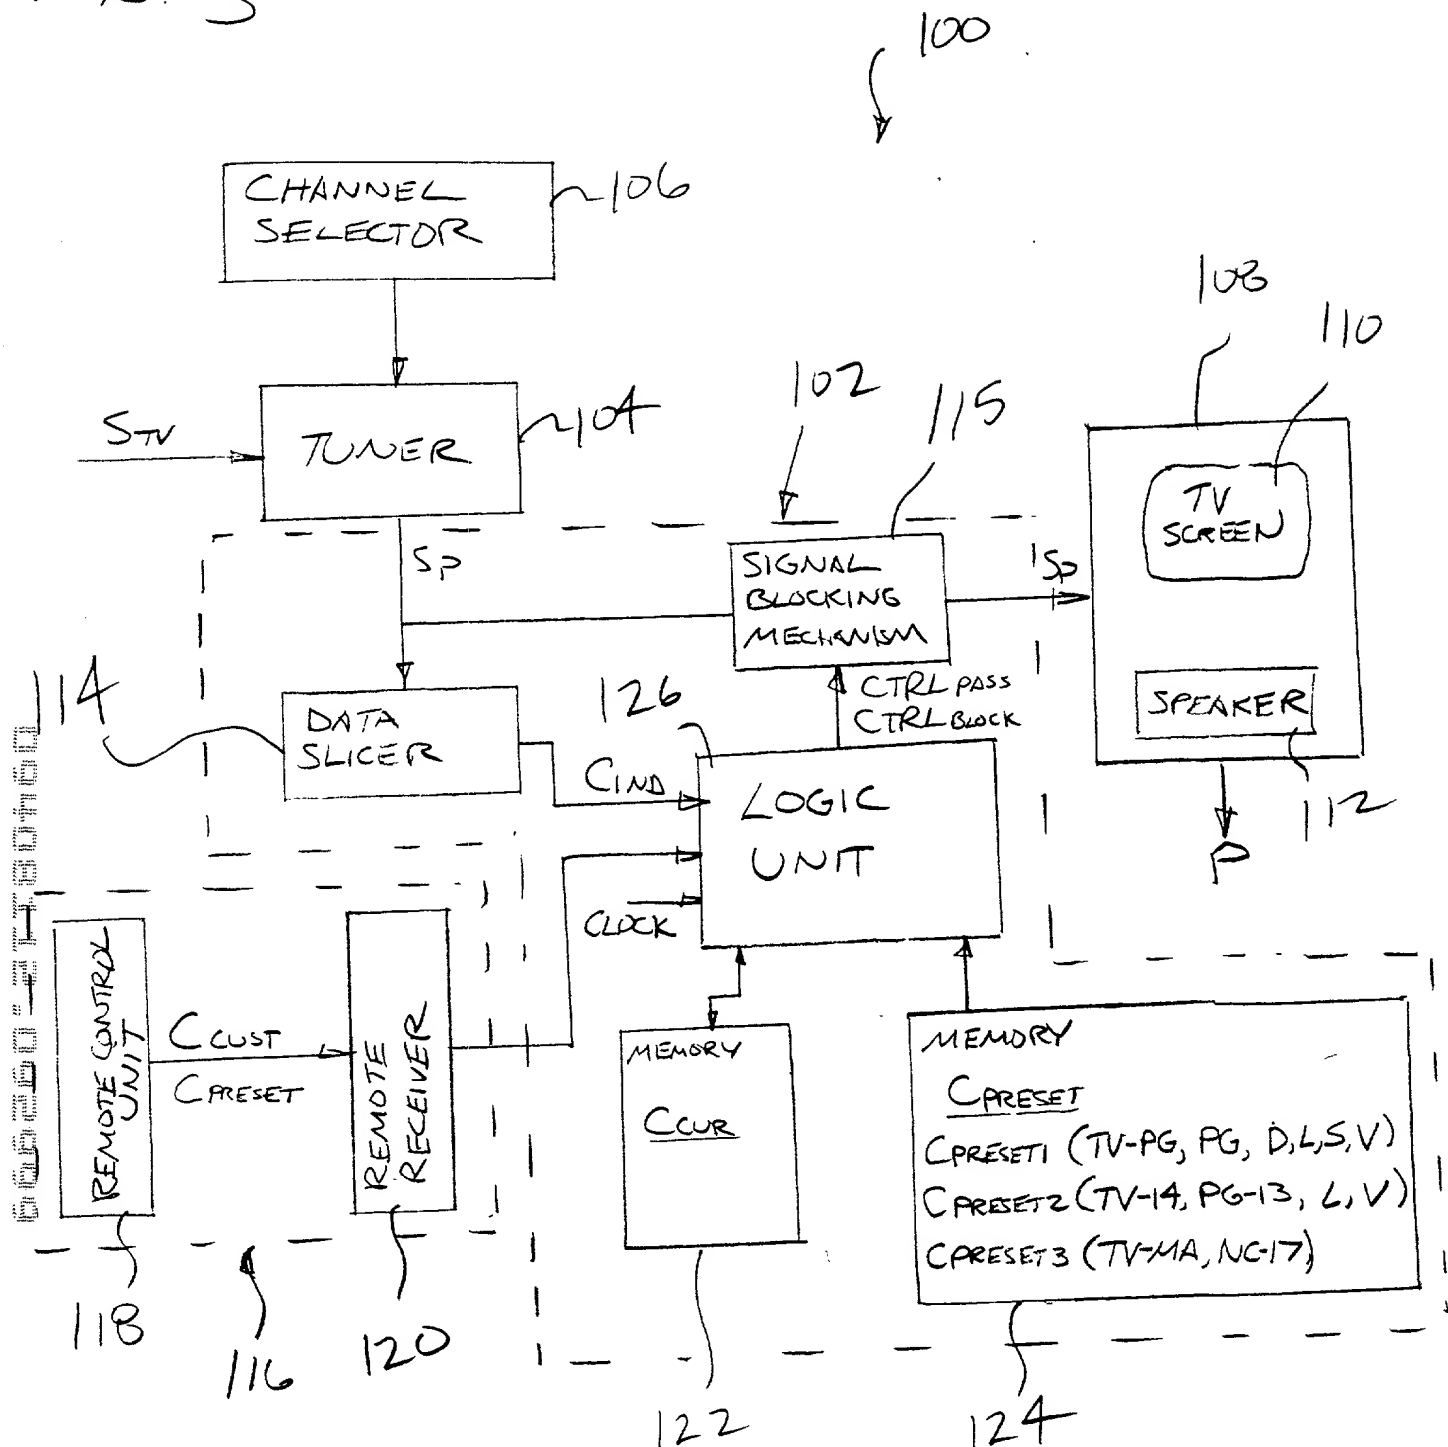 100
CHANNEL
SELECTOR
106
108
110
102
115
STV
TUNER
104
TV
SCREEN
SP
SIGNAL
BLOCKING
MECHANISM
SP
114
DATA
SLICER
126
CTRL PASS
CTRL BLOCK
SPEAKER
112
CIND
LOGIC
UNIT
P
CLOCK
REMOTE CONTROL
UNIT
CCUST
CPRESET
REMOTE
RECEIVER
MEMORY
CCUR
MEMORY
CPRESET
CPRESET1 (TV-PG, PG, D,L,S,V)
CPRESET2 (TV-14, PG-13, L,V)
CPRESET3 (TV-MA, NC-17)
118
116
120
122
124